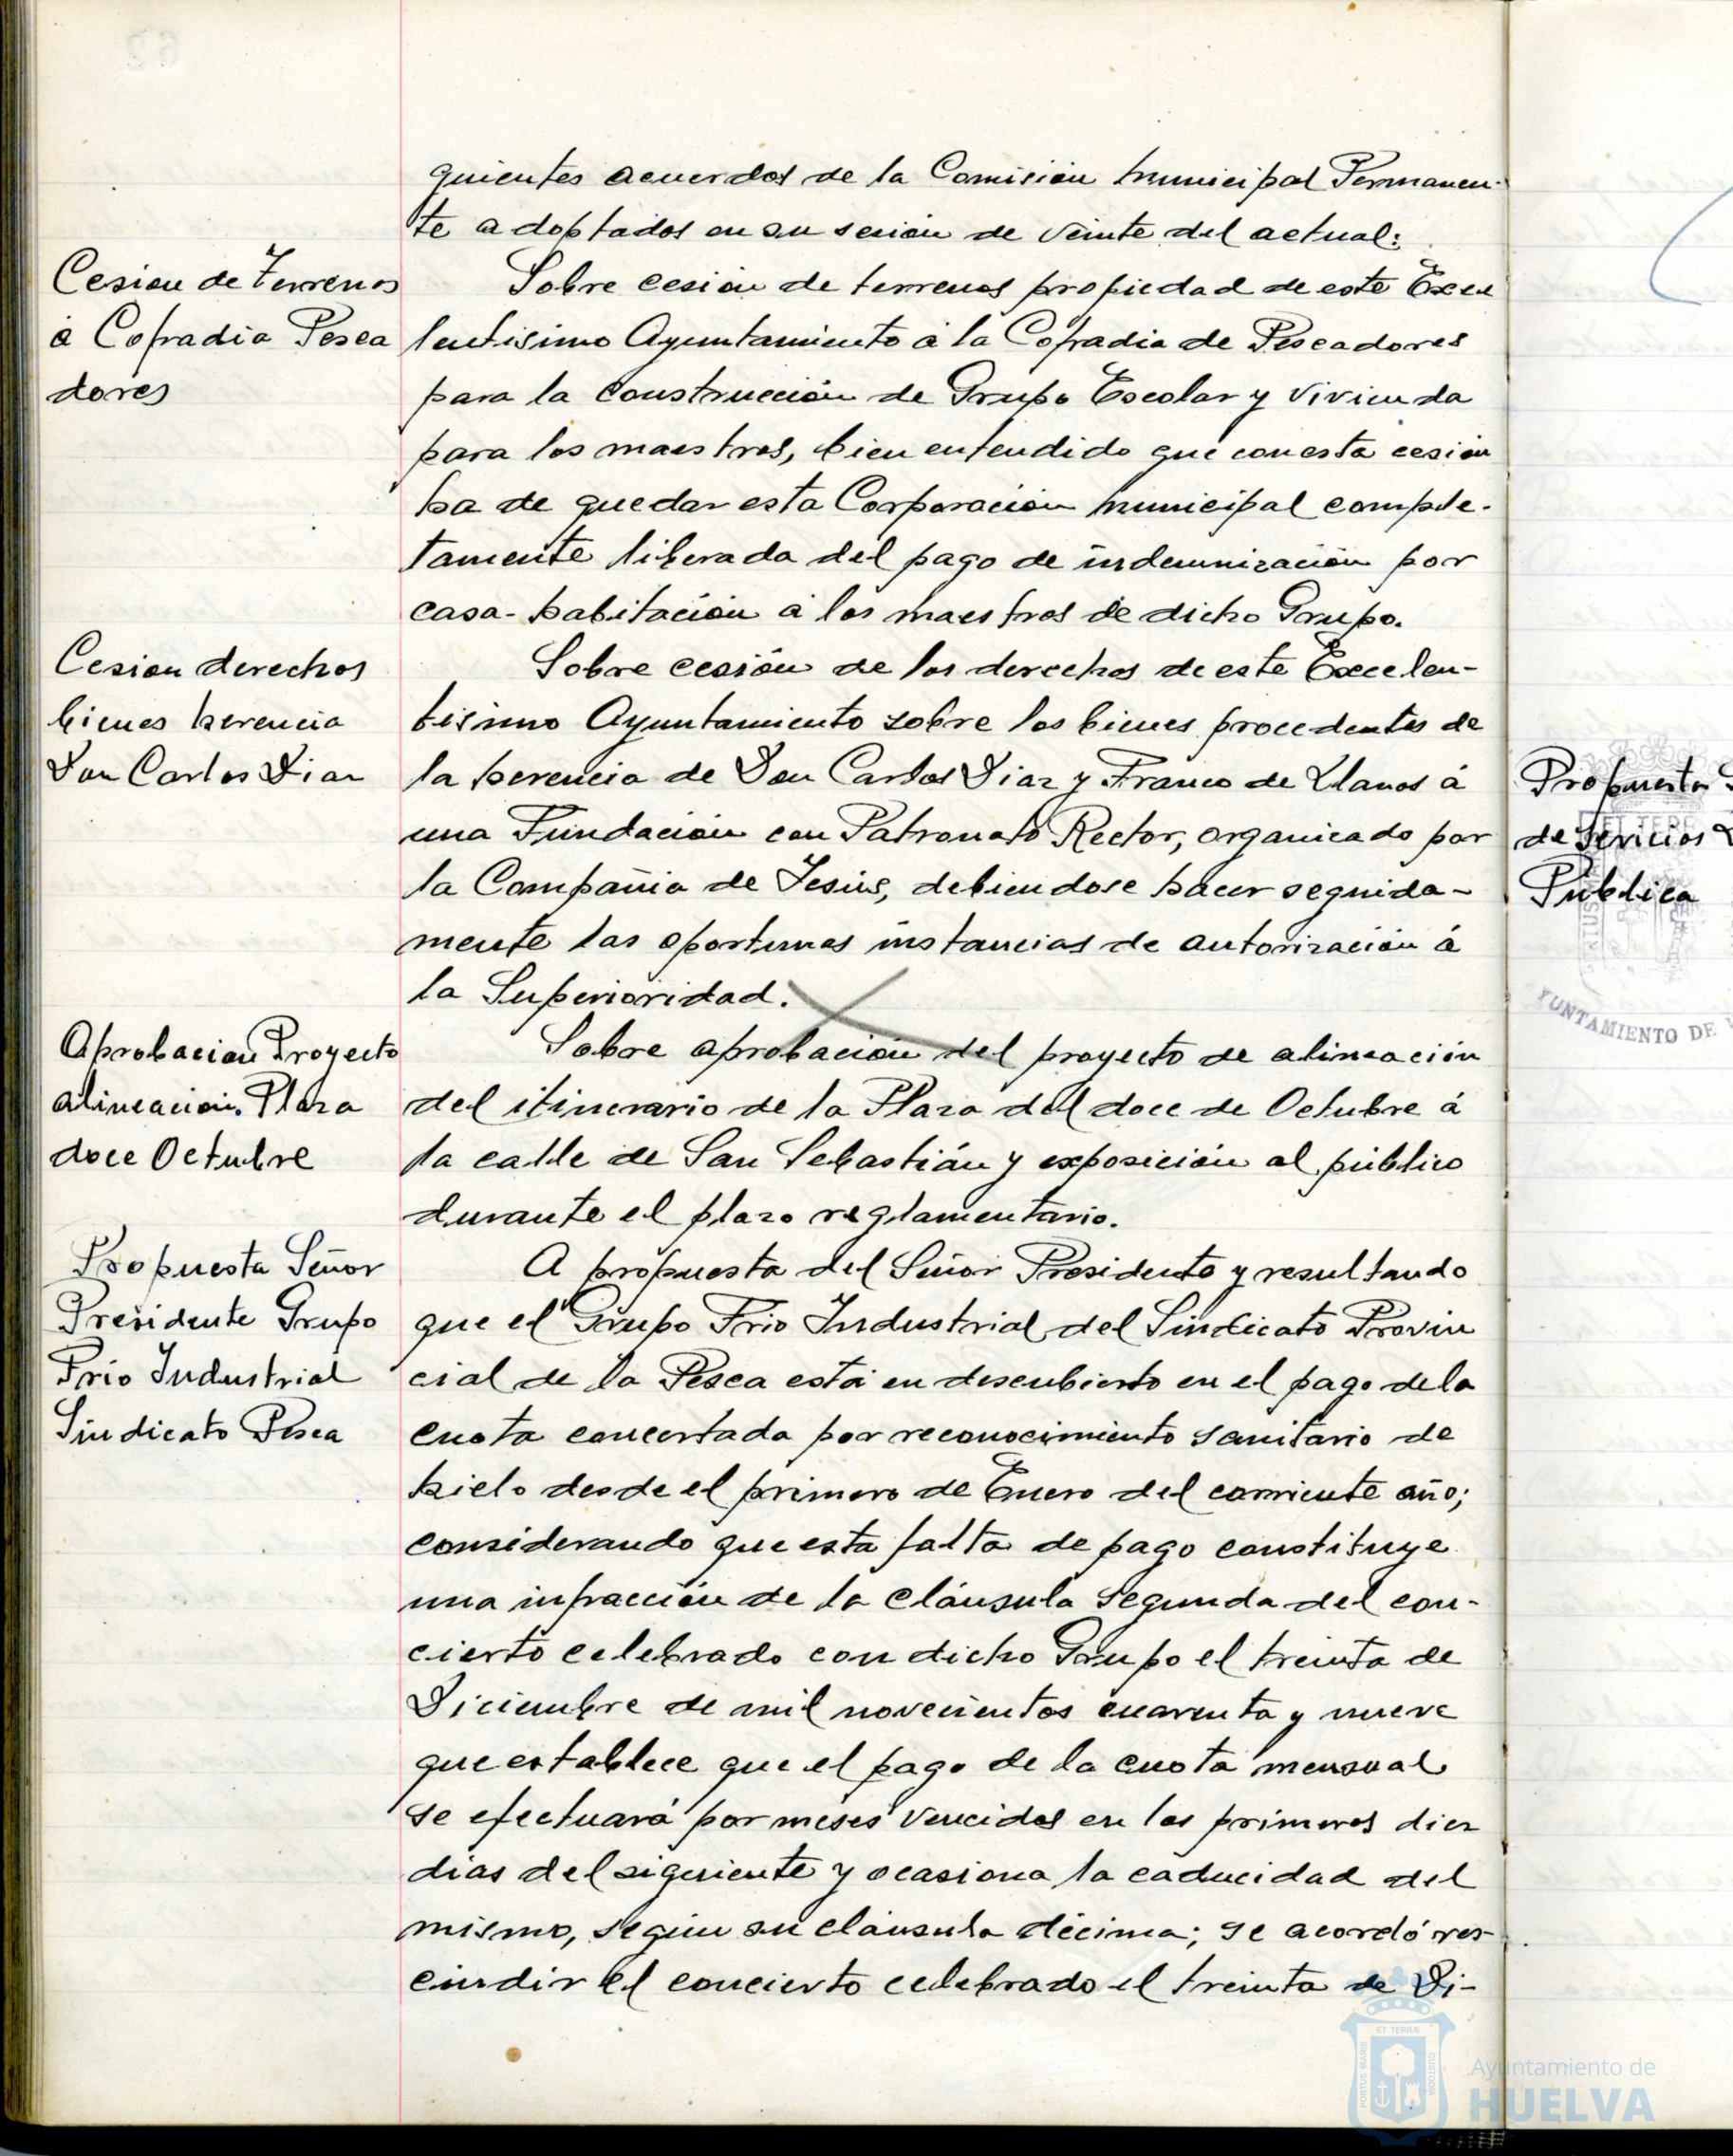 guientes acuerdos de la Comisión Municipal Permanen-
te adoptados en su sesión de veinte del actual:
Cesion de Terrenos
á Cofradia Pesca
dores
Sobre cesión de terrenos propiedad de este Exce
lentisimo Ayuntamiento á la Cofradia de Pescadores
para la construcción de Grupo Escolar y vivienda
para los maestros, bien entendido que con esta cesión
ha de quedar esta Corporación Municipal comple-
tamente liberada del pago de indemnización por
casa-habitación á los maestros de dicho Grupo.
Cesion derechos
bienes herencia
Don Carlos Diaz
Sobre cesión de los derechos de este Excelen-
tisimo Ayuntamiento sobre los bienes procedentes de
la herencia de Don Carlos Diaz y Franco de Llanos á
una Fundación con Patronato Rector, organizado por
la Compañia de Jesús, debiendose hacer seguida-
mente las oportunas instancias de autorización á
la Superioridad.
Aprobacion Proyecto
alineación Plaza
doce Octubre
Sobre aprobación del proyecto de alineación
del itinerario de la Plaza del doce de Octubre á
la calle de San Sebastián y exposición al público
durante el plazo reglamentario.
Propuesta Señor
Presidente Grupo
Frio Industrial
Sindicato Pesca
A propuesta del Señor Presidente y resultando
que el Grupo Frio Industrial del Sindicato Provin
cial de la Pesca está en descubierto en el pago de la
cuota concertada por reconocimiento sanitario de
hielo desde el primero de Enero del corriente año;
considerando que esta falta de pago constituye
una infracción de la cláusula segunda del con-
cierto celebrado con dicho Grupo el treinta de
Diciembre de mil novecientos cuarenta y nueve
que establece que el pago de la cuota mensual
se efectuará por meses vencidos en los primeros diez
dias del siguiente y ocasiona la caducidad del
mismo, según su cláusula décima; se acordó res-
cindir el concierto celebrado el treinta de Di-
Propuesta
de Servicios
Pública
YUNTAMIENTO DE
ET TERRÆ
PORTUS MARIS
CUSTODIA
Ayuntamiento de
HUELVA